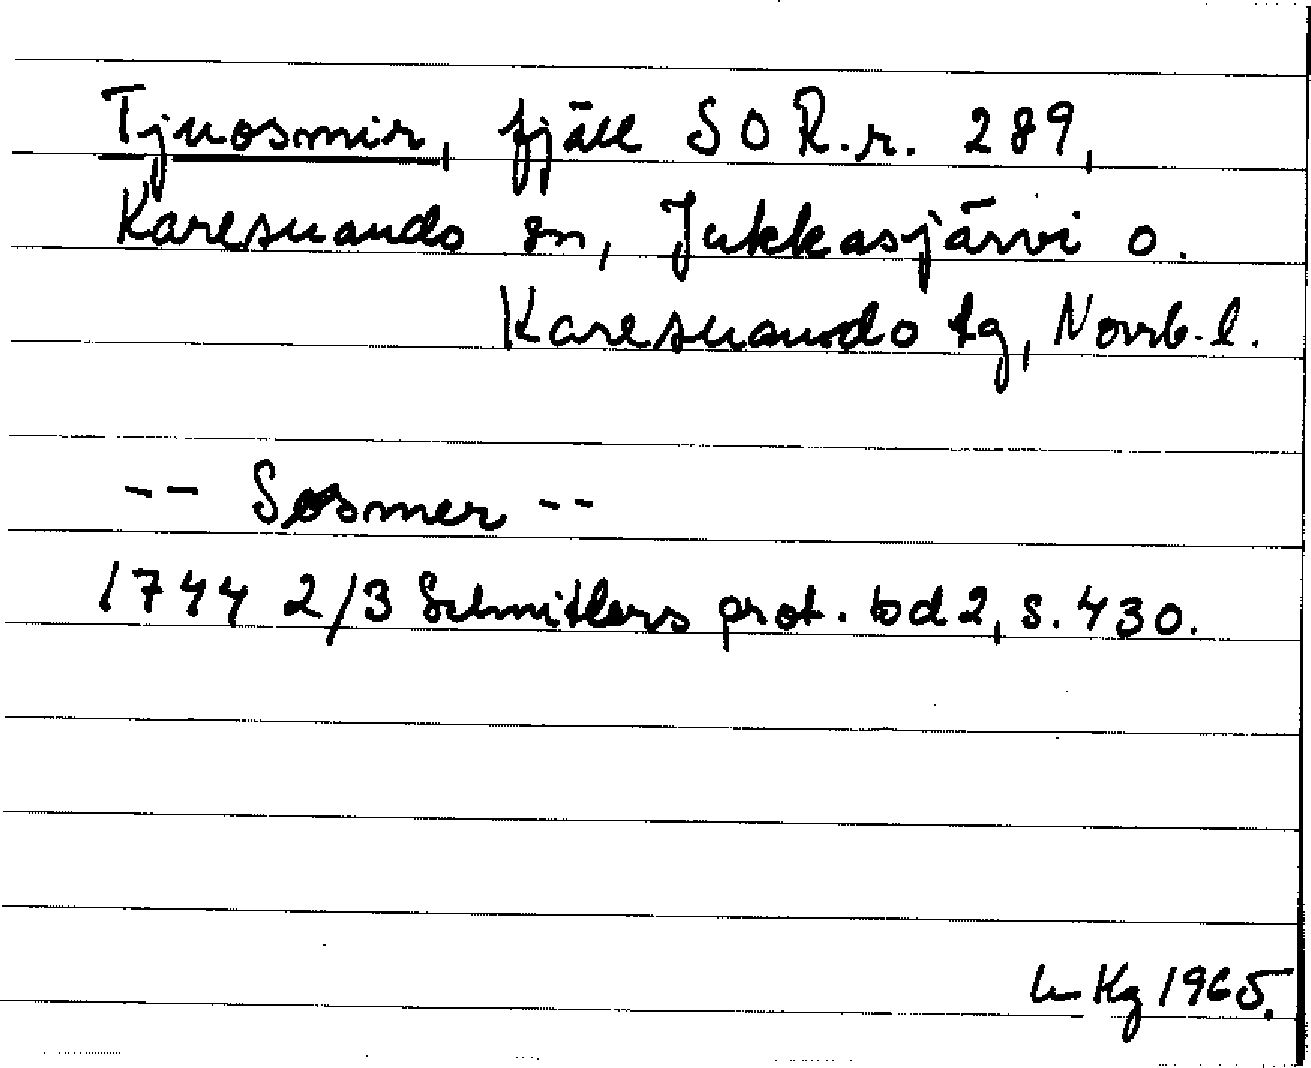 Tjuosmir, fjäll S O R.r. 289,
Karesuando sn, Jukkasjärvi o.
Karesuando tg, Norrb. l.
-- Søsmer --
1744 2/3 Schnitlers prot. bd 2, s. 430.
Kg 1965.